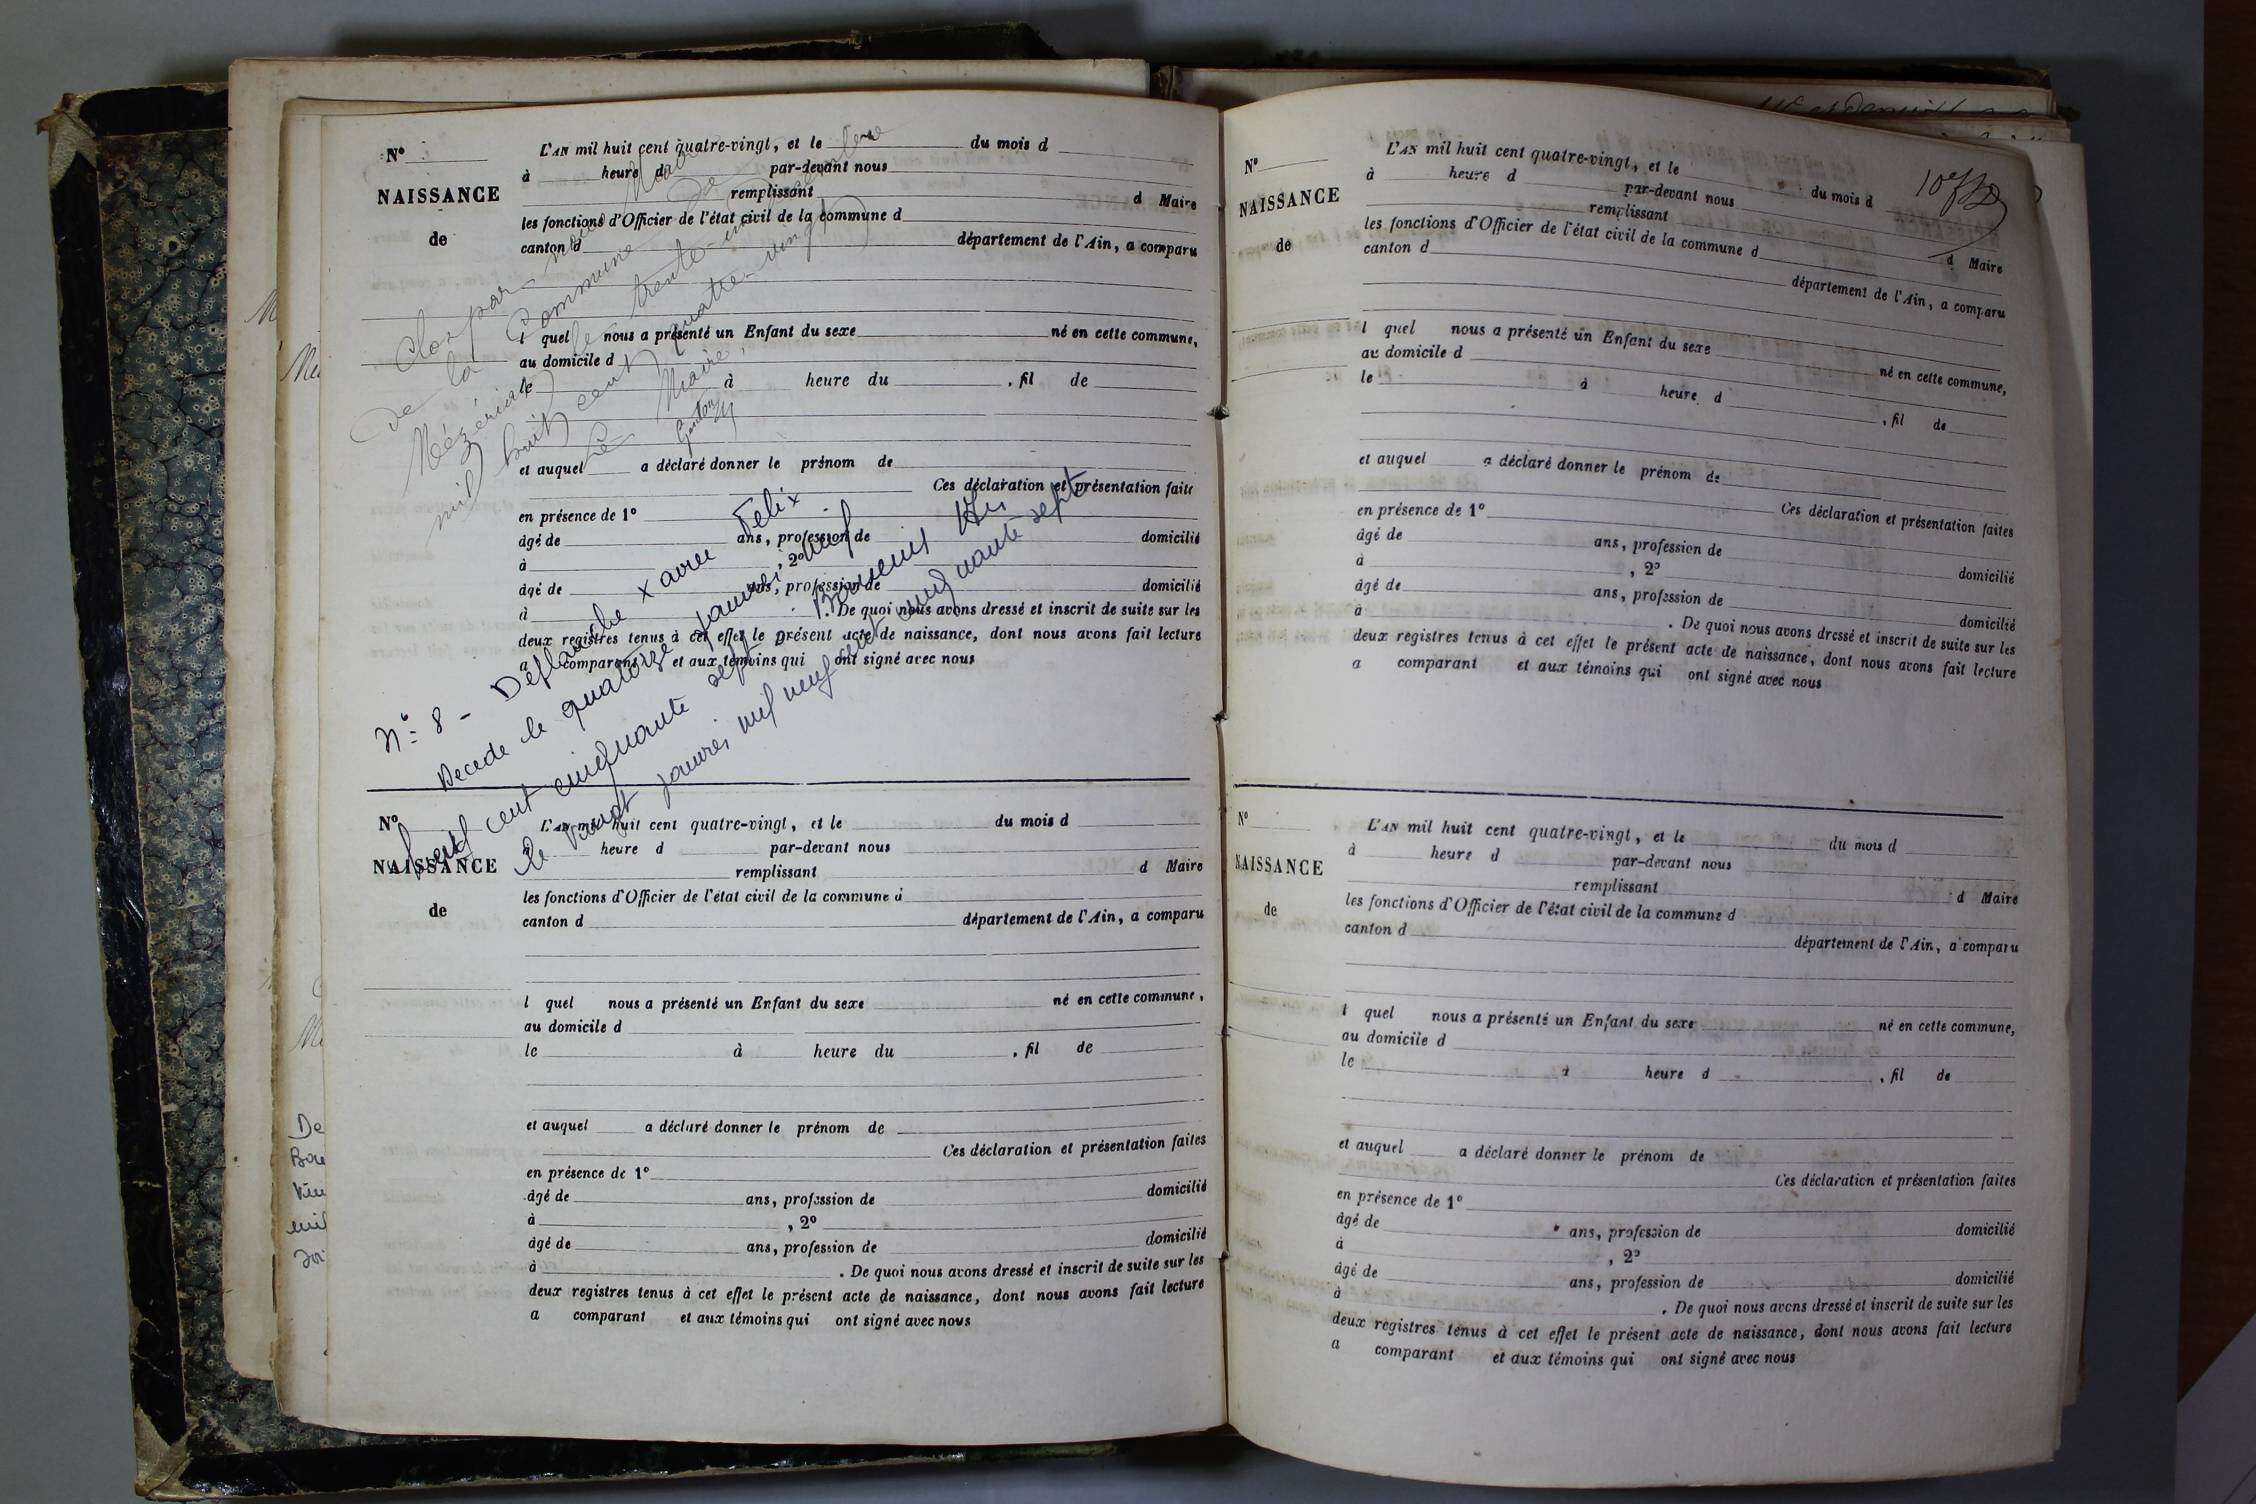 N° L'AN mil huit cent quatre-vingt, et le du mois d
à heure d par-devant nous
NAISSANCE
remplissant d Maire
les fonctions d'Officier de l'état civil de la commune d
de
canton d département de l'Ain, a comparu
l quel nous a présenté un Enfant du sexe né en cette commune,
au domicile d
le à heure du , fil de
et auquel a déclaré donner le prénom de
Ces déclaration et présentation faite
en présence de 1°
âgé de ans, profession de domicilié
à , 2°
âgé de ans, profession de domicilié
à . De quoi nous avons dressé et inscrit de suite sur les
deux registres tenus à cet effet le présent acte de naissance, dont nous avons fait lecture
a comparant et aux témoins qui ont signé avec nous
Clos par nous Maire
de la Commune de
Mézériat le trente-un
mil huit cent quatre-vingt
Le Maire,
N° 8 - Deflanche x avec Felix
Decede le quatorze janvier mil
neuf cent cinquante sept.
le vingt janvier mil neuf cent cinquante sept
N° L'AN mil huit cent quatre-vingt, et le du mois d
heure d par-devant nous
NAISSANCE
remplissant d Maire
les fonctions d'Officier de l'état civil de la commune d
de
canton d département de l'Ain, a comparu
l quel nous a présenté un Enfant du sexe né en cette commune,
au domicile d
le à heure du , fil de
et auquel a déclaré donner le prénom de
Ces déclaration et présentation faites
en présence de 1°
âgé de ans, profession de domicilié
à , 2°
âgé de ans, profession de domicilié
à . De quoi nous avons dressé et inscrit de suite sur les
deux registres tenus à cet effet le présent acte de naissance, dont nous avons fait lecture
a comparant et aux témoins qui ont signé avec nous
N° L'AN mil huit cent quatre-vingt, et le du mois d
à heure d par-devant nous
NAISSANCE
remplissant d Maire
les fonctions d'Officier de l'état civil de la commune d
de
canton d département de l'Ain, a comparu
l quel nous a présenté un Enfant du sexe né en cette commune,
au domicile d
le à heure d , fil de
et auquel a déclaré donner le prénom de
Ces déclaration et présentation faites
en présence de 1°
âgé de ans, profession de domicilié
à , 2°
âgé de ans, profession de domicilié
à . De quoi nous avons dressé et inscrit de suite sur les
deux registres tenus à cet effet le présent acte de naissance, dont nous avons fait lecture
a comparant et aux témoins qui ont signé avec nous
N° L'AN mil huit cent quatre-vingt, et le du mois d
à heure d par-devant nous
NAISSANCE
remplissant d Maire
les fonctions d'Officier de l'état civil de la commune d
de
canton d département de l'Ain, a comparu
l quel nous a présenté un Enfant du sexe né en cette commune,
au domicile d
le à heure d , fil de
et auquel a déclaré donner le prénom de
Ces déclaration et présentation faites
en présence de 1°
âgé de ans, profession de domicilié
à , 2°
âgé de ans, profession de domicilié
à . De quoi nous avons dressé et inscrit de suite sur les
deux registres tenus à cet effet le présent acte de naissance, dont nous avons fait lecture
a comparant et aux témoins qui ont signé avec nous